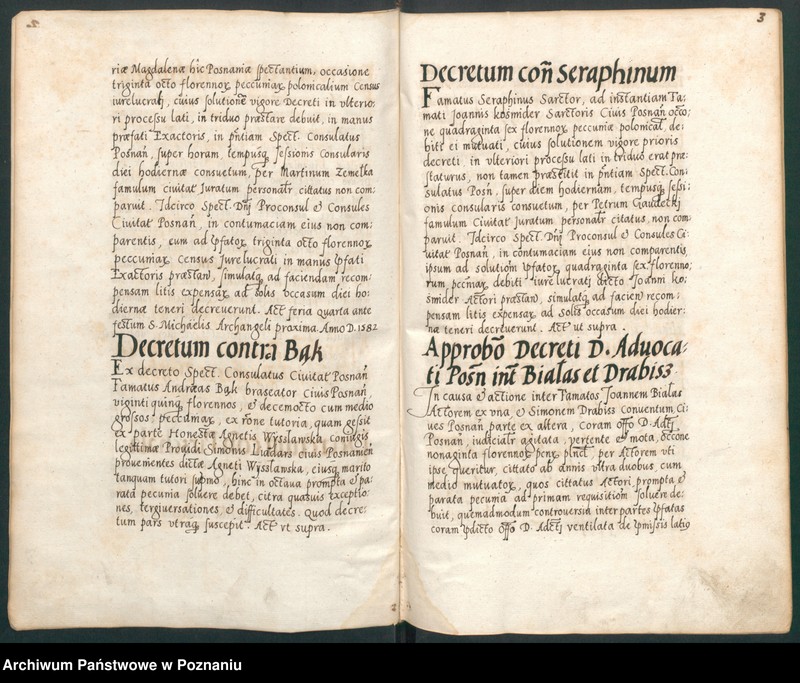 riæ Magdalenæ hic Posnaniæ spectantium, occasione
triginta octo florennoꝝ peccuniaꝝ polonicalium Census
iurelucratj, cuius solutione vigore Decreti in vlterio:
ri processu lati, in triduo præstare debuit, in manus
præfati Exactoris, in pñtiam Spect. Consulatus
Posnañ, super horam, tempusqꝫ sessionis Consularis
diei hodiernæ consuetum, per Martinum Zemełka
famulum civitat Juratum personalr cittatus non com:
paruit. Idcirco Spect. Dnj Proconsul et Consules
Civitat Posnañ, in contumaciam eius non com:
parentis, eum ad ipsatoꝝ, triginta octo florennoꝝ
peccuniaꝝ Census Jurelucrali in manus ipsati
Exactoris præstand, simulatqꝫ ad faciendam recom:
pensam litis expensaꝝ, ad solis occasum diei ho:
diernæ teneri decreuerunt. Act feria quarta ante
festum S. Michaelis Archangeli proxima. Anno D. 1582
Decretum contra Bąk
Ex decreto Spect. Consulatus Civitat Posnañ
Famatus Andreas Bąk braseator Civis Posnañ,
viginti quinqꝫ florennos, et decemocto cum medio
grossos peccuniaꝝ, ex rone tutoria, quam gessit
ex parte Honestæ Agnetis Wysslawska, coniugis
legittimæ Providi Simonis Liadars civis Posnanien
prouenientes dictæ Agneti Wysslawska, eiusqꝫ marito
tanquam tutori supmo, hinc in octaua prompta et pa:
rata pecunia soluere debet, citra quasuis exceptio:
nes, tergiuersationes, et difficultates. Quod decre:
tum pars vtraqꝫ suscepit. Act vt supra.
3
Decretum coñ Seraphinum
Famatus Seraphinus Sarctor, ad instantiam Fa:
mati Joannis Kosmider Sarctoris Civis Posnañ occo:
ne quadraginta sex florennoꝝ, pecuniæ polonical, de:
biti ei mutuati, cuius solutionem vigore prioris
decreti, in vlteriori processu lati in triduo erat præ:
staturus, non tamen præstitit in pñtiam Spect. Con:
sulatus Posñ, super diem hodiernam, tempusqꝫ sessi:
onis consularis consuetum, per Petrum Gaudetkj
famulum Civitat Juratum personalr citatus, non com
paruit. Idcirco Spect. Dnj Proconsul et Consules Ci:
vitat Posnañ, in contumaciam eius non comparentis
ipsum ad solutiom ipsatoꝝ, quadraginta sex florenno:
rum, pecuniaꝝ, debiti iurelucratj dicto Joanni Ko:
smider Actori præstand, simulatqꝫ ad faciend recom:
pensam litis expensaꝝ, ad solis occasum diei hodier:
næ teneri decreuerunt. Act ut supra.
Approbõ Decreti D. Aduoca:
ti Posñ int Bialas et Drabisz
In causa et actione inter Famatos Joannem Bialas
Actorem ex vna, et Simonem Drabiss conuentum Ci:
ues Posnañ parte ex altera, coram offo D. Adctj
Posnañ, iudicialr agitata, vertente et mota, occone
nonaginta florennoꝝ penꝝ plnel, per Actorem vti
ipse queritur, cittato ab annis vltra duobus, cum
medio mutuatoꝝ, quos cittatus Actori prompta et
parata pecunia ad primam requisitiom soluere de:
buit, quemadmodum controuersia inter partes ipsatas
coram ipdicto offo D. Adctj ventilata de ipmissis latio
Archiwum Państwowe w Poznaniu